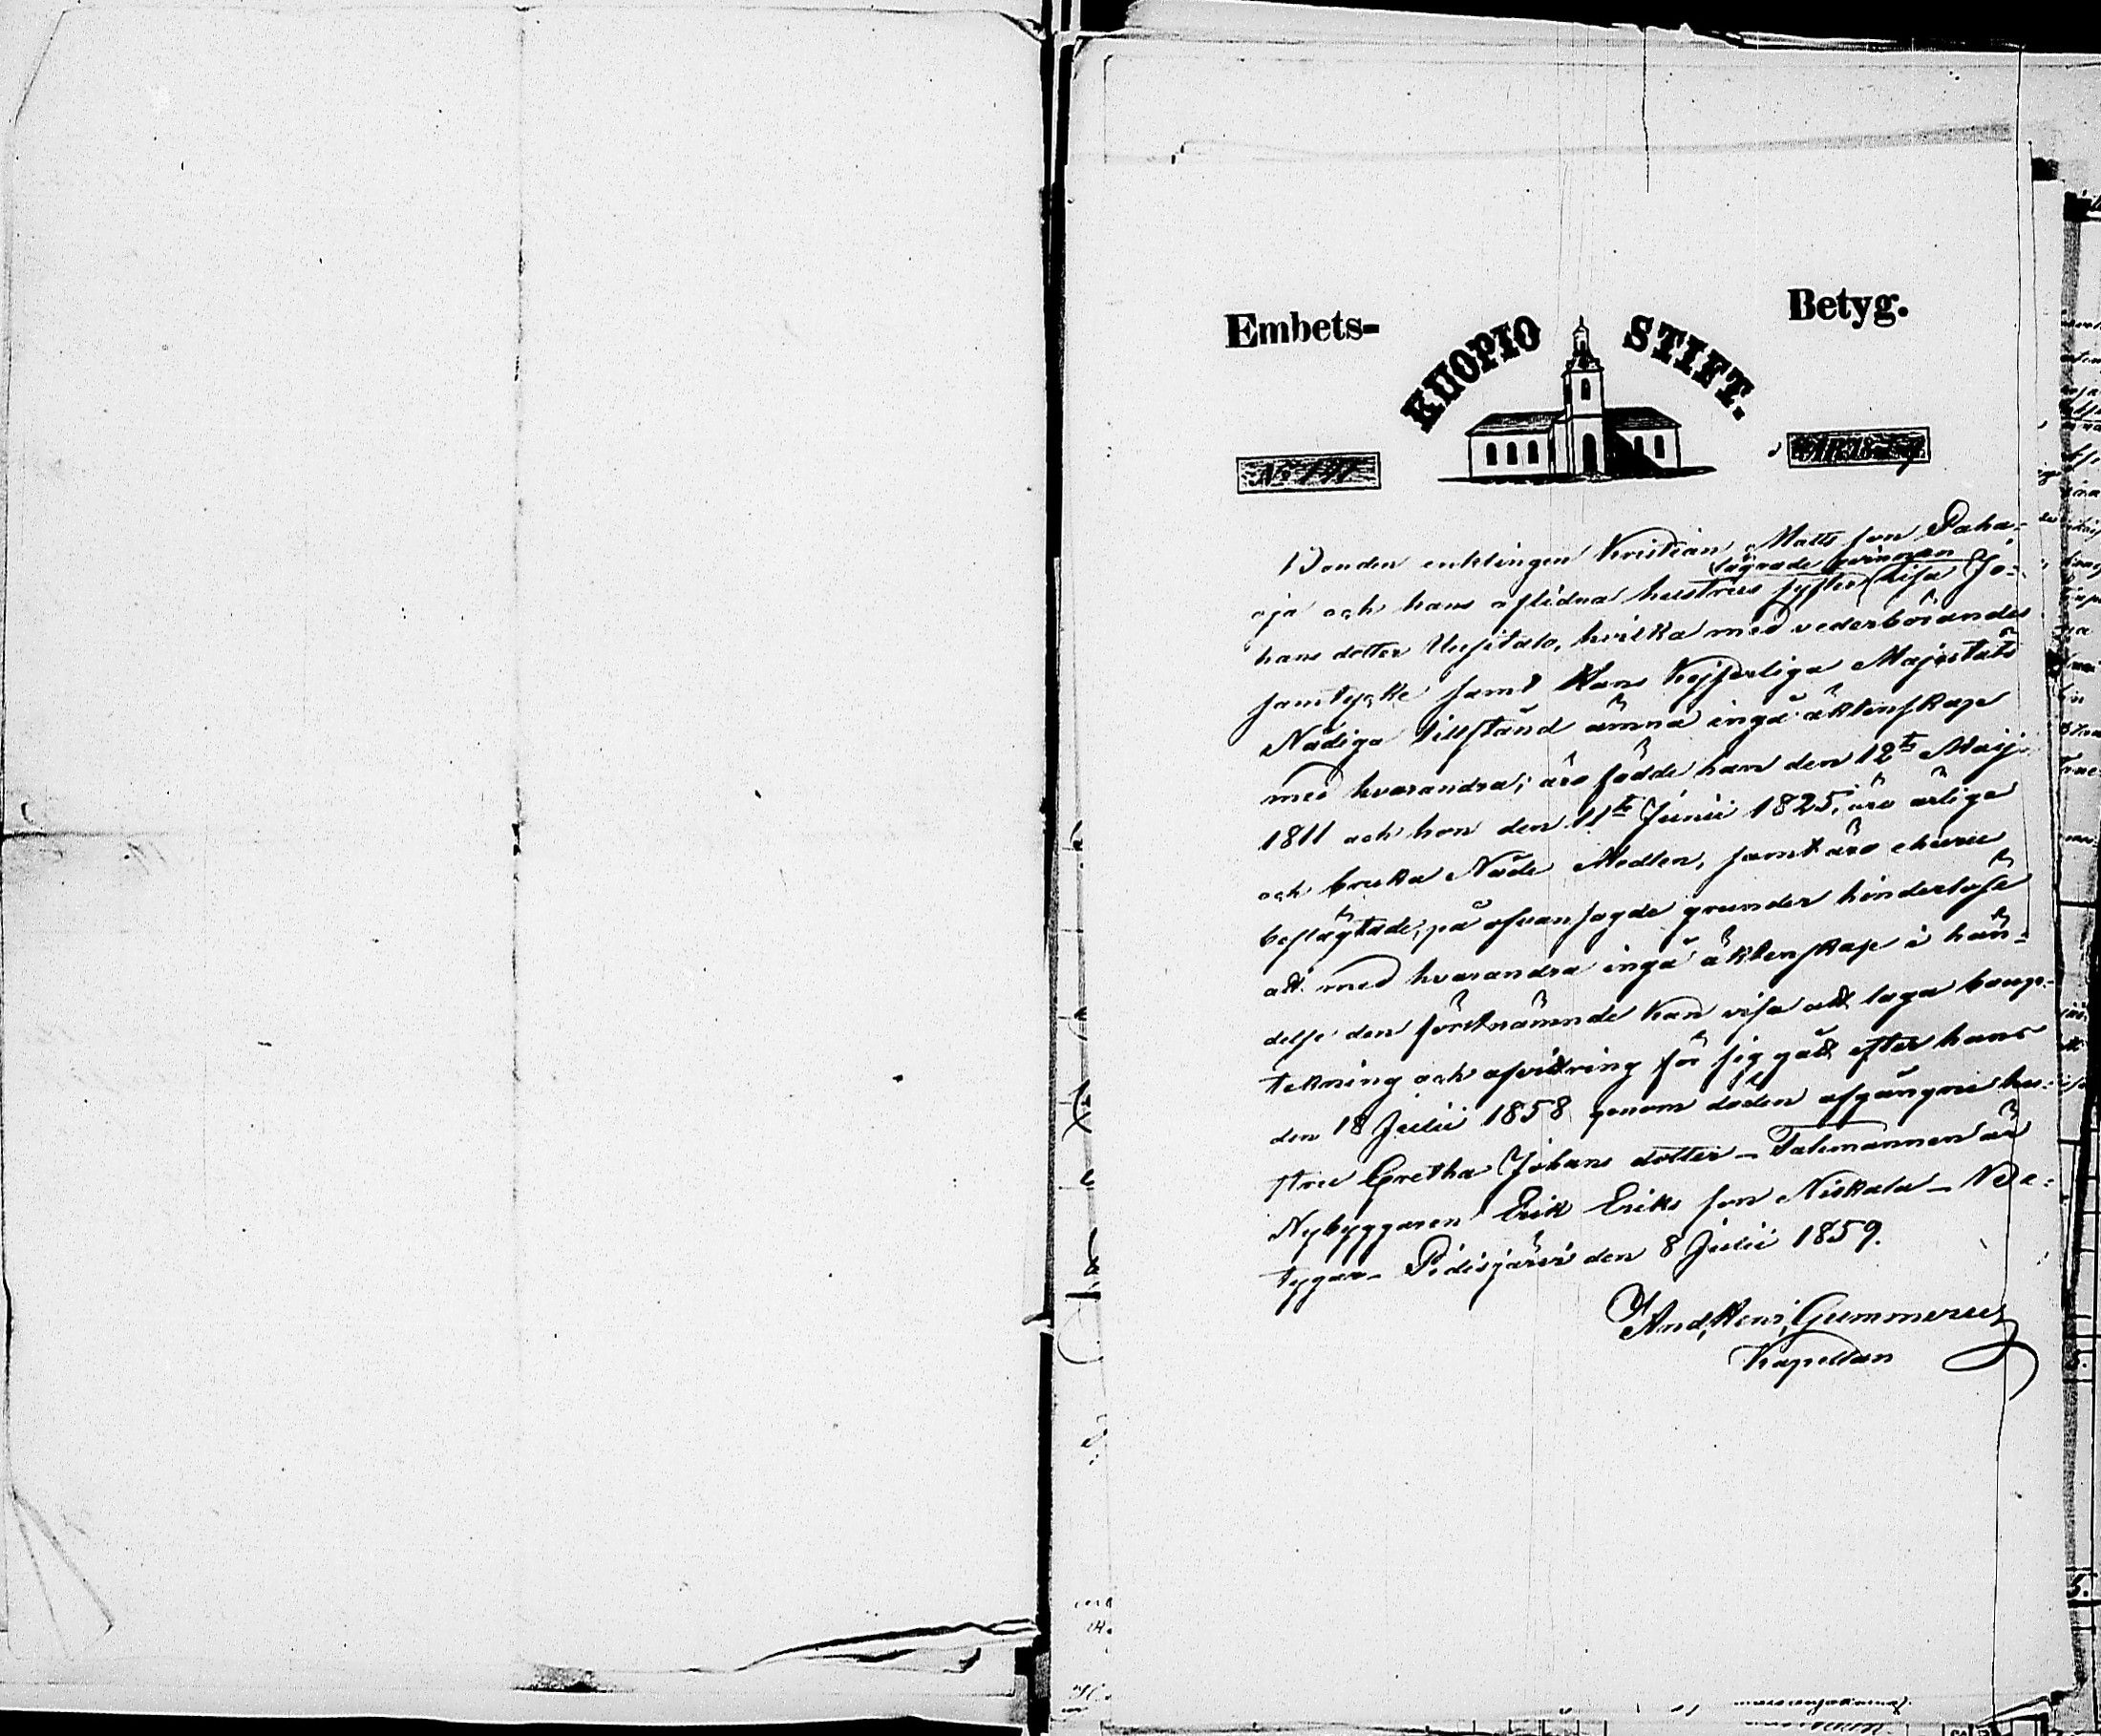 Embets-
Betyg.
KUOPIO STIFT.
Bonden enklingen Kristian Matts son Paha-
lägrade qvinnan
oja och hans aflidna hustrus syster Lisa Jo-
hans dotter Uusitalo, hvilka med vederbörandes
samtycke samt Hans Kejserliga Majestäts
Nådiga tillstånd ämna ingå äktenskap
med hvarandra; äro födde han den 12te Maij
1811 och hon den 11te Junii 1825, äro ärlige
och bruka Nåde Medlen, samt äro ehuru
beslägtade, på ofvansagde grunder hinderlöse
att med hvarandra ingå äktenskap i hän-
delse den förstnämnde kan visa att laga boup-
tekning och afvittring för sig gått efter hans
den 18 Julii 1858 genom döden afgångne hu-
stru Gretha Johans dotter - Talemannen är
Nybyggaren Erik Eriks son Niskala - Be-
tygar - Pidisjärvi den 8 Julii 1859.
And. Henr. Gummerus
Kapellan